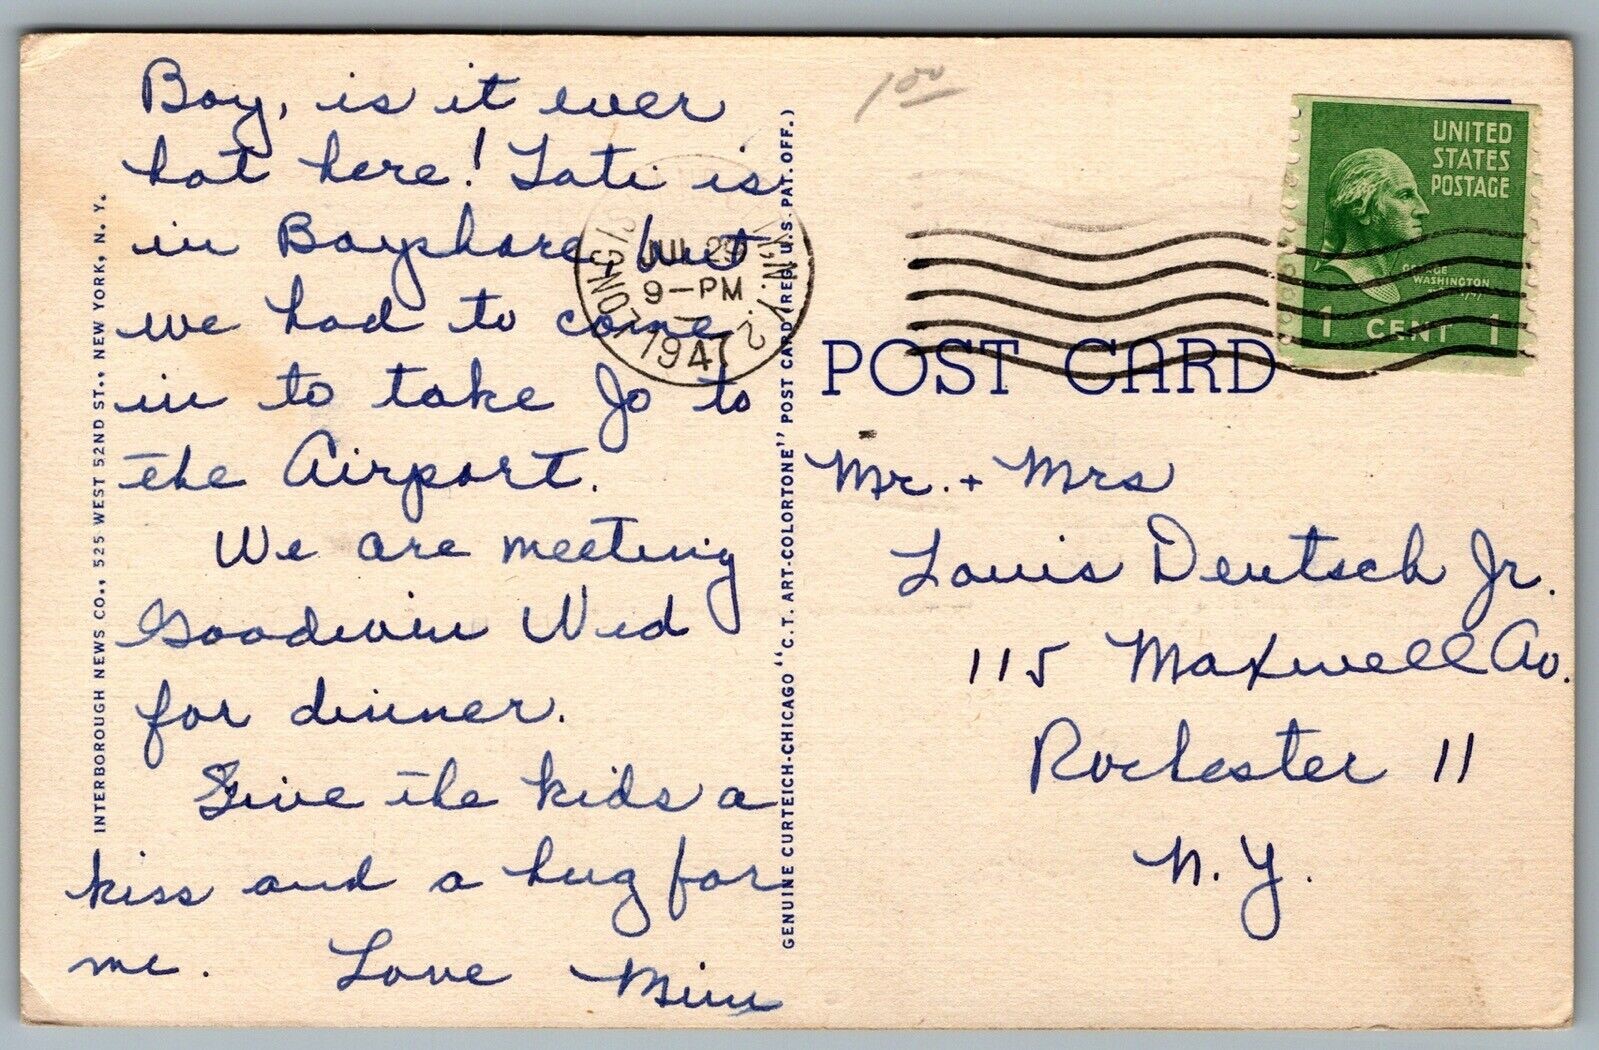 Boy, is it ever
hot here! Tati is
in Bayshore, but
we had to come
in to take Jo to
the Airport.
We are meeting
Goodwin Wed
for dinner.
Give the kids a
kiss and a hug for
me. Love Mim
INTERBOROUGH NEWS CO., 525 WEST 52ND ST., NEW YORK, N. Y.
GENUINE CURTEICH-CHICAGO "C. T. ART-COLORTONE" POST CARD (REG. U.S. PAT. OFF.)
1 00
LONG IS
N.Y. 2
JUL 29
9-PM
1947
UNITED
STATES
POSTAGE
GEORGE
WASHINGTON
1 CENT 1
POST CARD
Mr. + Mrs
Louis Deutsch Jr.
115 Maxwell Av.
Rochester 11
N. Y.